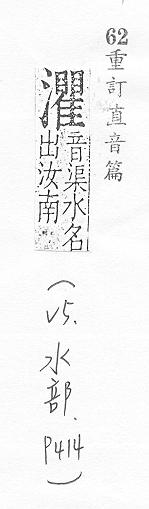 62重訂直音篇
灈音渠水名
出汝南
(v5.水部.P414)